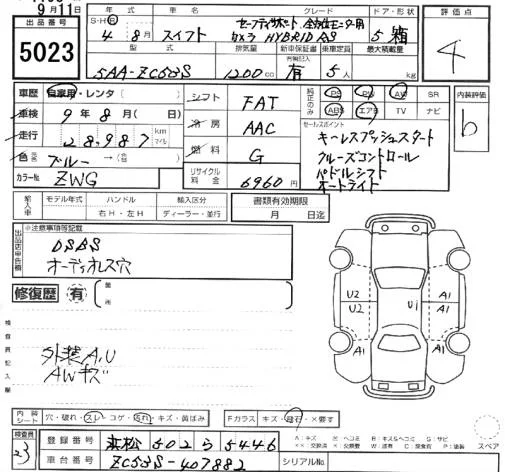 9月11日
出品番号
5023
S・H・R 車名 グレード ドア・形状
4年 8月 スイフト セーフティサポート 全方位モニター用カメラ HYBRID 5 箱
型式 排気量 新車保証書 乗車定員 最大積載量
5AA-ZC53S 1200cc 有 5人 kg
評価点
4
車歴 自家用・レンタ( )
車検 9年8月( 日)
走行 28,987 km マイル
色 ブルー →( )
カラーNo ZWG
シフト FAT
冷房 AAC
燃料 G
リサイクル料金 6960円
純正のみ PS PW AW SR
ABS エアB TV ナビ
内装評価
b
セールスポイント
キーレスプッシュスタート
クルーズコントロール
パドルシフト
オートライト
輸入車 モデル年式 ハンドル 輸入区分
年 右H・左H ディーラー・並行
書類有効期限
月 日迄
出品店申告欄
※注意事項等記載
DSBS
オーディオレス穴
修復歴 有 箇所
U2
U2
U1
A1
A1
A1
A1
検査員記入欄
外装A,U
AWキズ
内装シート 穴・破れ・スレ・コゲ・汚れ・キズ・黄ばみ
Fガラス キズ・飛石・×要す
A：キズ U：ヘコミ B：キズ&ヘコミ S：サビ
スペア
検査員
23
登録番号 浜松 502 ら 5446
車台番号 ZC53S-407882
シリアルNo.